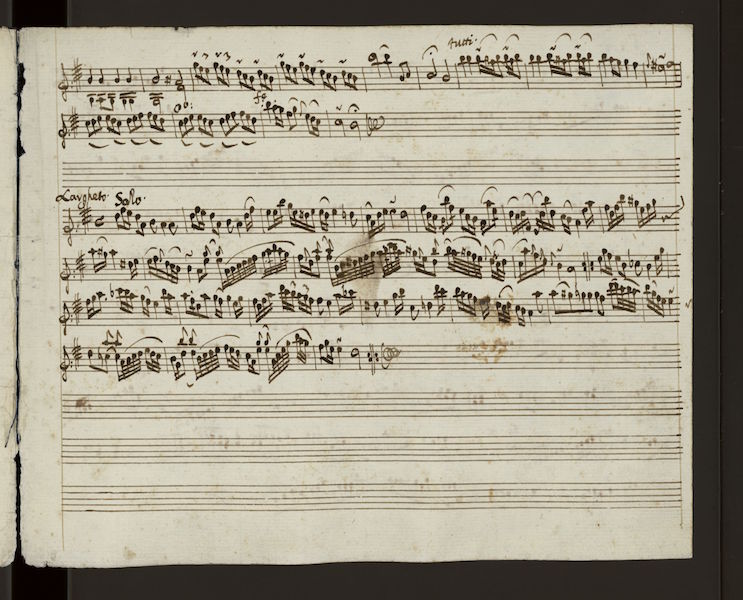 tutti.
Largheto. Solo.